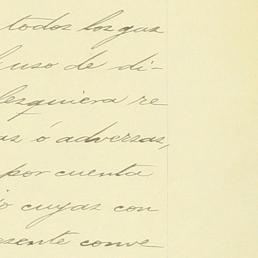 todos los gas
uso de di-
lesquiera re
as ó adversas,
por cuenta
cuyas con
sente conve